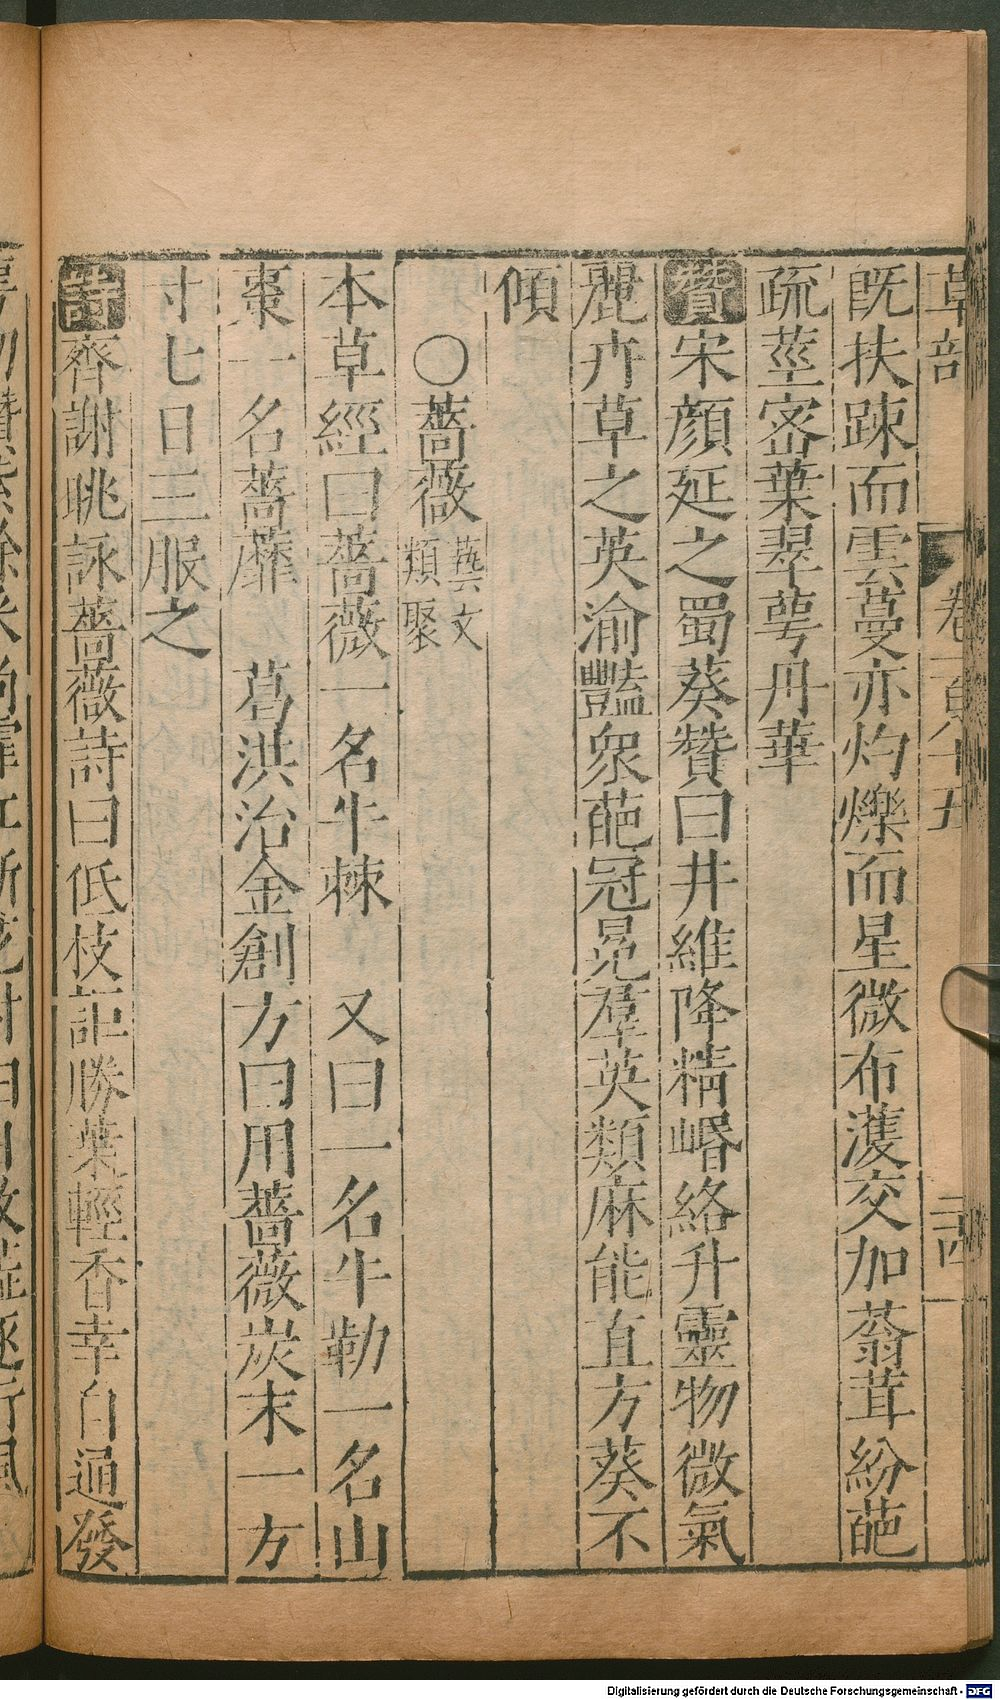 草部 卷一百八十五 二四
旣扶踈而雲蔓亦灼爍而星微布濩交加蓊茸紛葩
疏莖宻葉翠萼丹華
贊宋顔延之蜀葵贊曰井維降精岷絡升靈物微氣
麗卉草之英渝豔衆葩冠冕羣英類麻能直方葵不
傾
○薔薇藝文類聚
本草經曰薔薇一名牛棘 又曰一名牛勒一名山
棗一名薔蘼 葛洪治金創方曰用薔薇炭末一方
寸七日三服之
詩齊謝眺詠薔薇詩曰低枝詎勝葉輕香幸自通發
Digitalisierung gefördert durch die Deutsche Forschungsgemeinschaft - DFG